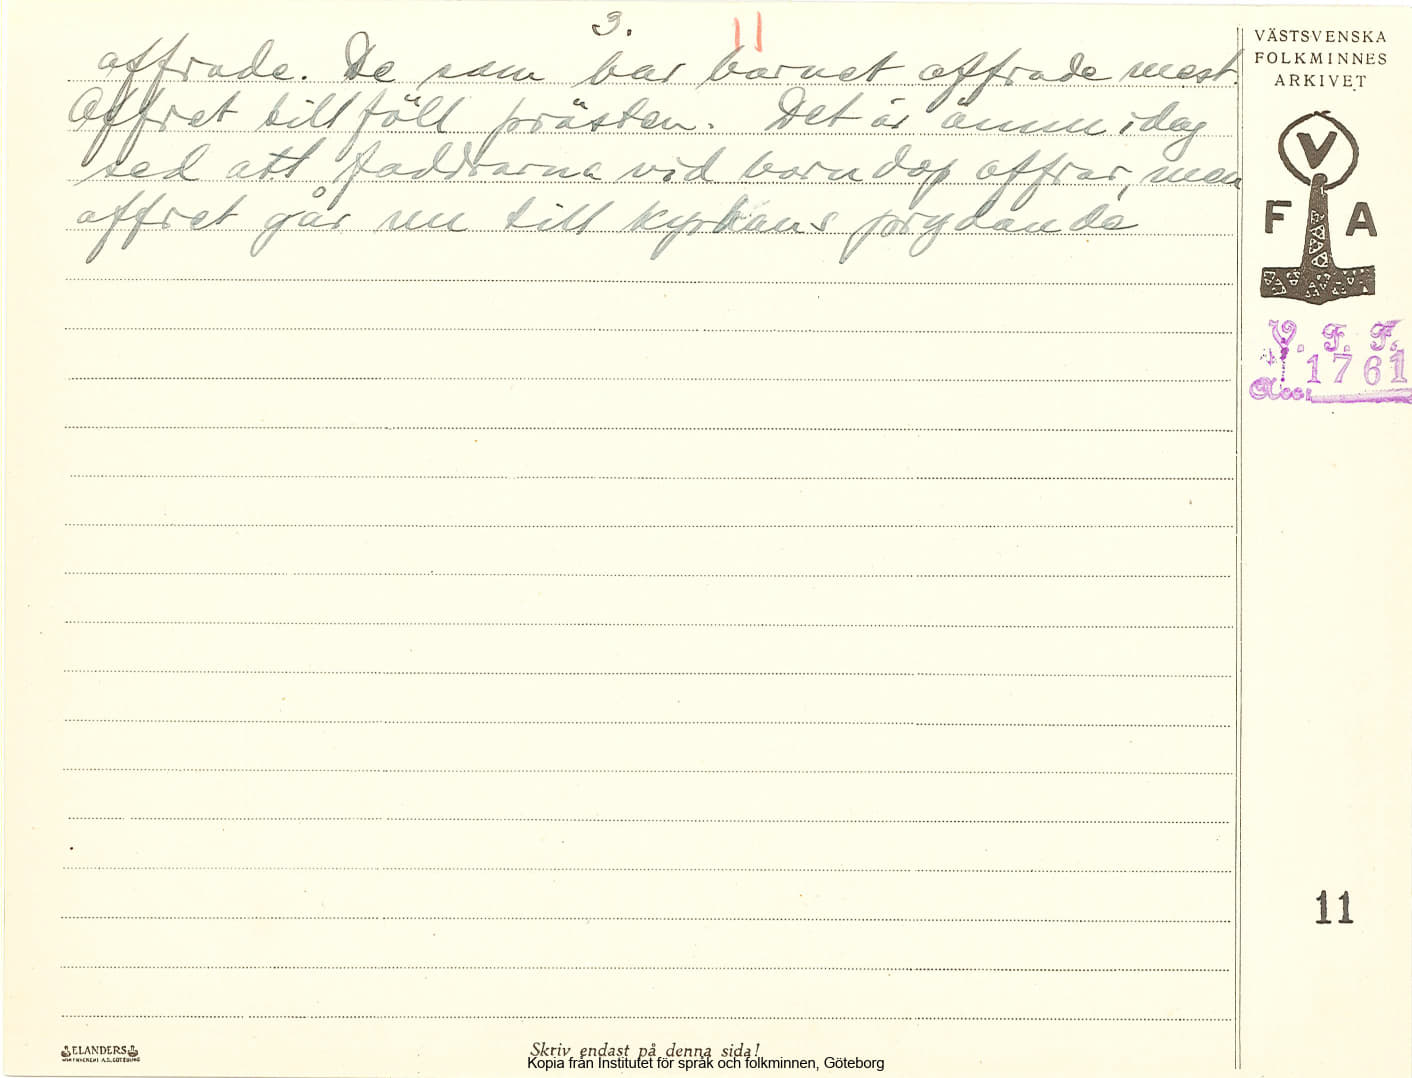 3.
11
offrade. De som bar barnet offrade mest.
Offret tillföll prästen. Det är ännu idag
sed att faddrarna vid barndop offrar, men
offret går nu till kyrkans prydande
VÄSTSVENSKA
FOLKMINNES
ARKIVET
V
F A
V. F. F.
1761
Acc:
11
ELANDERS
Skriv endast på denna sida!
Kopia från Institutet för språk och folkminnen, Göteborg